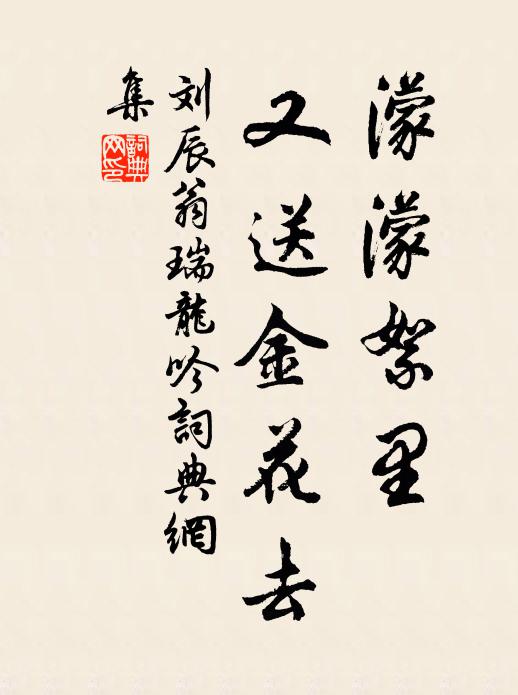 濛濛絮里
又送金花去
刘辰翁瑞龍吟詞典網
集
詞典网印